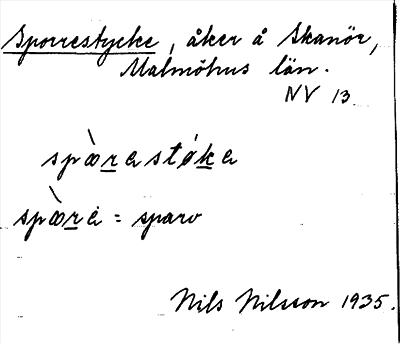 Sporrestycke, åker å Skanör,
Malmöhus län.
NV 13
spæ̀rastøka
spæ̀rė = sparv
Nils Nilsson 1935.